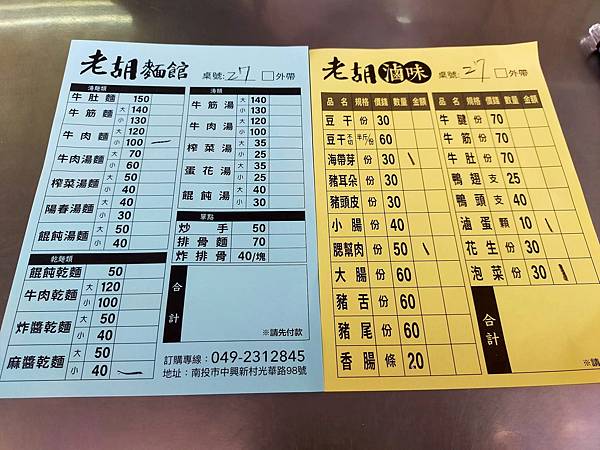 老胡麵館 桌號: 27 □外帶
湯麵類
牛肚麵 150
牛筋麵 大 140
小 130
牛肉麵 大 120
小 100 一
牛肉湯麵 大 70
小 60
榨菜湯麵 大 50
小 40
陽春湯麵 大 40
小 30
餛飩湯麵 大 50
小 40
乾麵類
餛飩乾麵 50
牛肉乾麵 大 120
小 100
炸醬乾麵 大 50
小 40
麻醬乾麵 大 50
小 40 一
湯類
牛筋湯 大 140
小 130
牛肉湯 大 120
小 100
榨菜湯 大 35
小 25
蛋花湯 大 35
小 25
餛飩湯 大 40
小 30
單點
炒手 50
排骨麵 70
炸排骨 40/塊
合計
※請先付款
訂購專線：049-2312845
地址：南投市中興新村光華路98號
老胡滷味 桌號: 27 □外帶
品名 規格 價錢 數量 金額
豆干 份 30
豆干 不切 半斤/份 60
海帶芽 份 30 \
豬耳朵 份 30
豬頭皮 份 30
小腸 份 40
腮幫肉 份 50 \
大腸 份 60
豬舌 份 60
豬尾 份 60
香腸 條 20
品名 規格 價錢 數量 金額
牛腱 份 70
牛筋 份 70
牛肚 份 70
鴨翅 支 25
鴨頭 支 40
滷蛋 顆 10 \
花生 份 30
泡菜 份 30 \
合計
※請